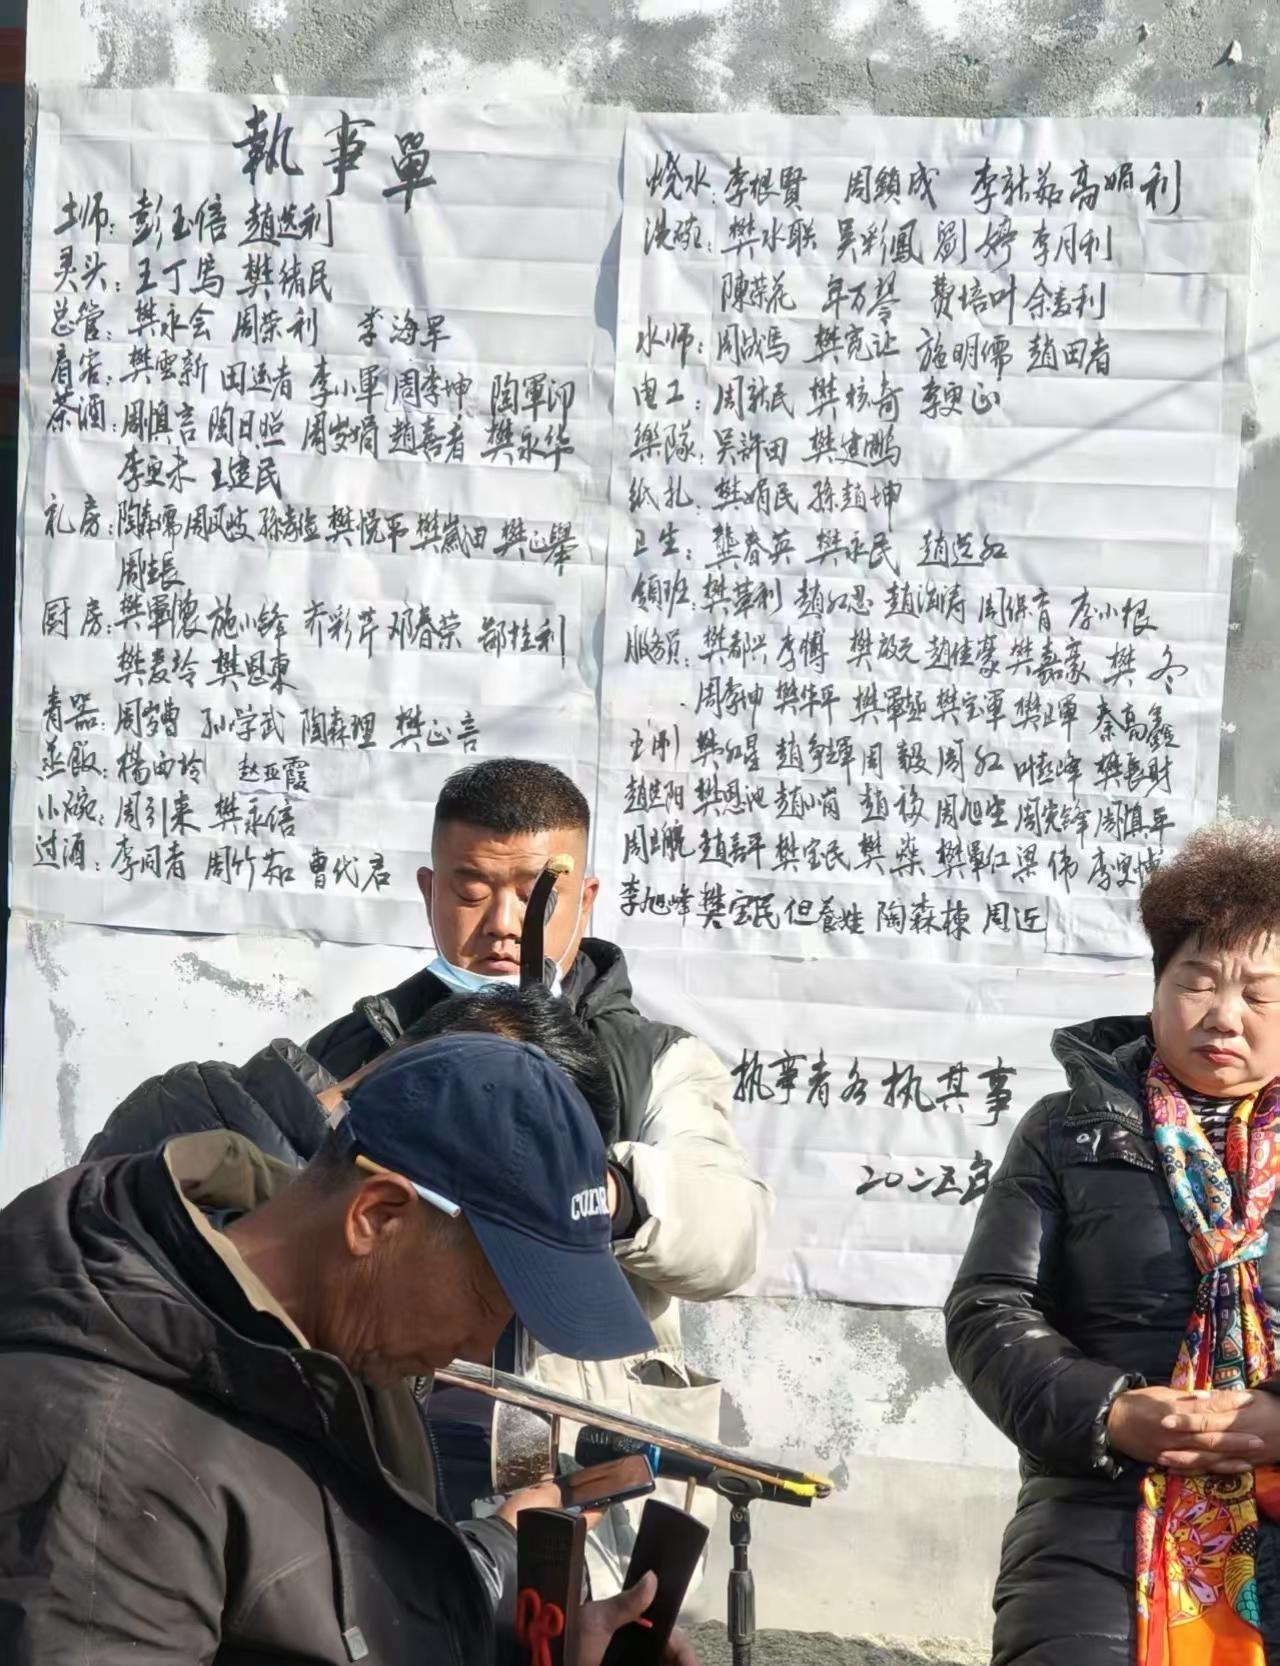 執事單
土师：彭玉信 趙选利
灵头：王丁笃 樊绪民
总管：樊永会 周荣利 李海军
看客：樊雲新 田选者 李小軍 周李坤 陶軍印
茶酒：周慎言 陶日照 周 娟 趙嘉者 樊永华
李更未 王建民
礼房：陶 儒 周风岐 孫 樊悦平 樊嵗田 樊正舉
周 長
厨房：樊軍懷 施小锋 齐彩芹 邓春荣 郜桂利
樊麦玲 樊恩東
青器：周 曹 孙学武 陶森理 樊正言
蒸飯：楊西玲 赵亚霞
小碗：周引来 樊永信
过酒：李同者 周竹茹 曹代君
烧水：李根賢 周鎖成 李 茹 高娟利
洗碗：樊水联 吴彩鳳 劉婷 李月利
陳荣花 年万琴 费培叶 余麦利
水师：周战馬 樊宽让 施明儒 趙田者
电工：周 民 樊核奇 李更正
樂隊：吴許田 樊建鹏
纸扎：樊娟民 孫趙坤
卫生：龔春英 樊永民 趙选红
領班：樊華利 趙红恩 趙海涛 周保育 李小根
服务员：樊都兴 李博 樊啟元 趙佳豪 樊嘉豪 樊冬
周李坤 樊华平 樊軍 樊宝軍 樊正軍 秦高鑫
樊红星 趙争輝 周毅 周红 叶 峰 樊長財
趙 阳 樊恩池 趙小岗 趙 周旭 周宪锋 周慎平
周 航 趙嘉平 樊宝民 樊燊 樊軍仁 梁伟 李更博
李旭峰 樊宝民 但養娃 陶森棟 周近
执事者各执其事
二〇二五年